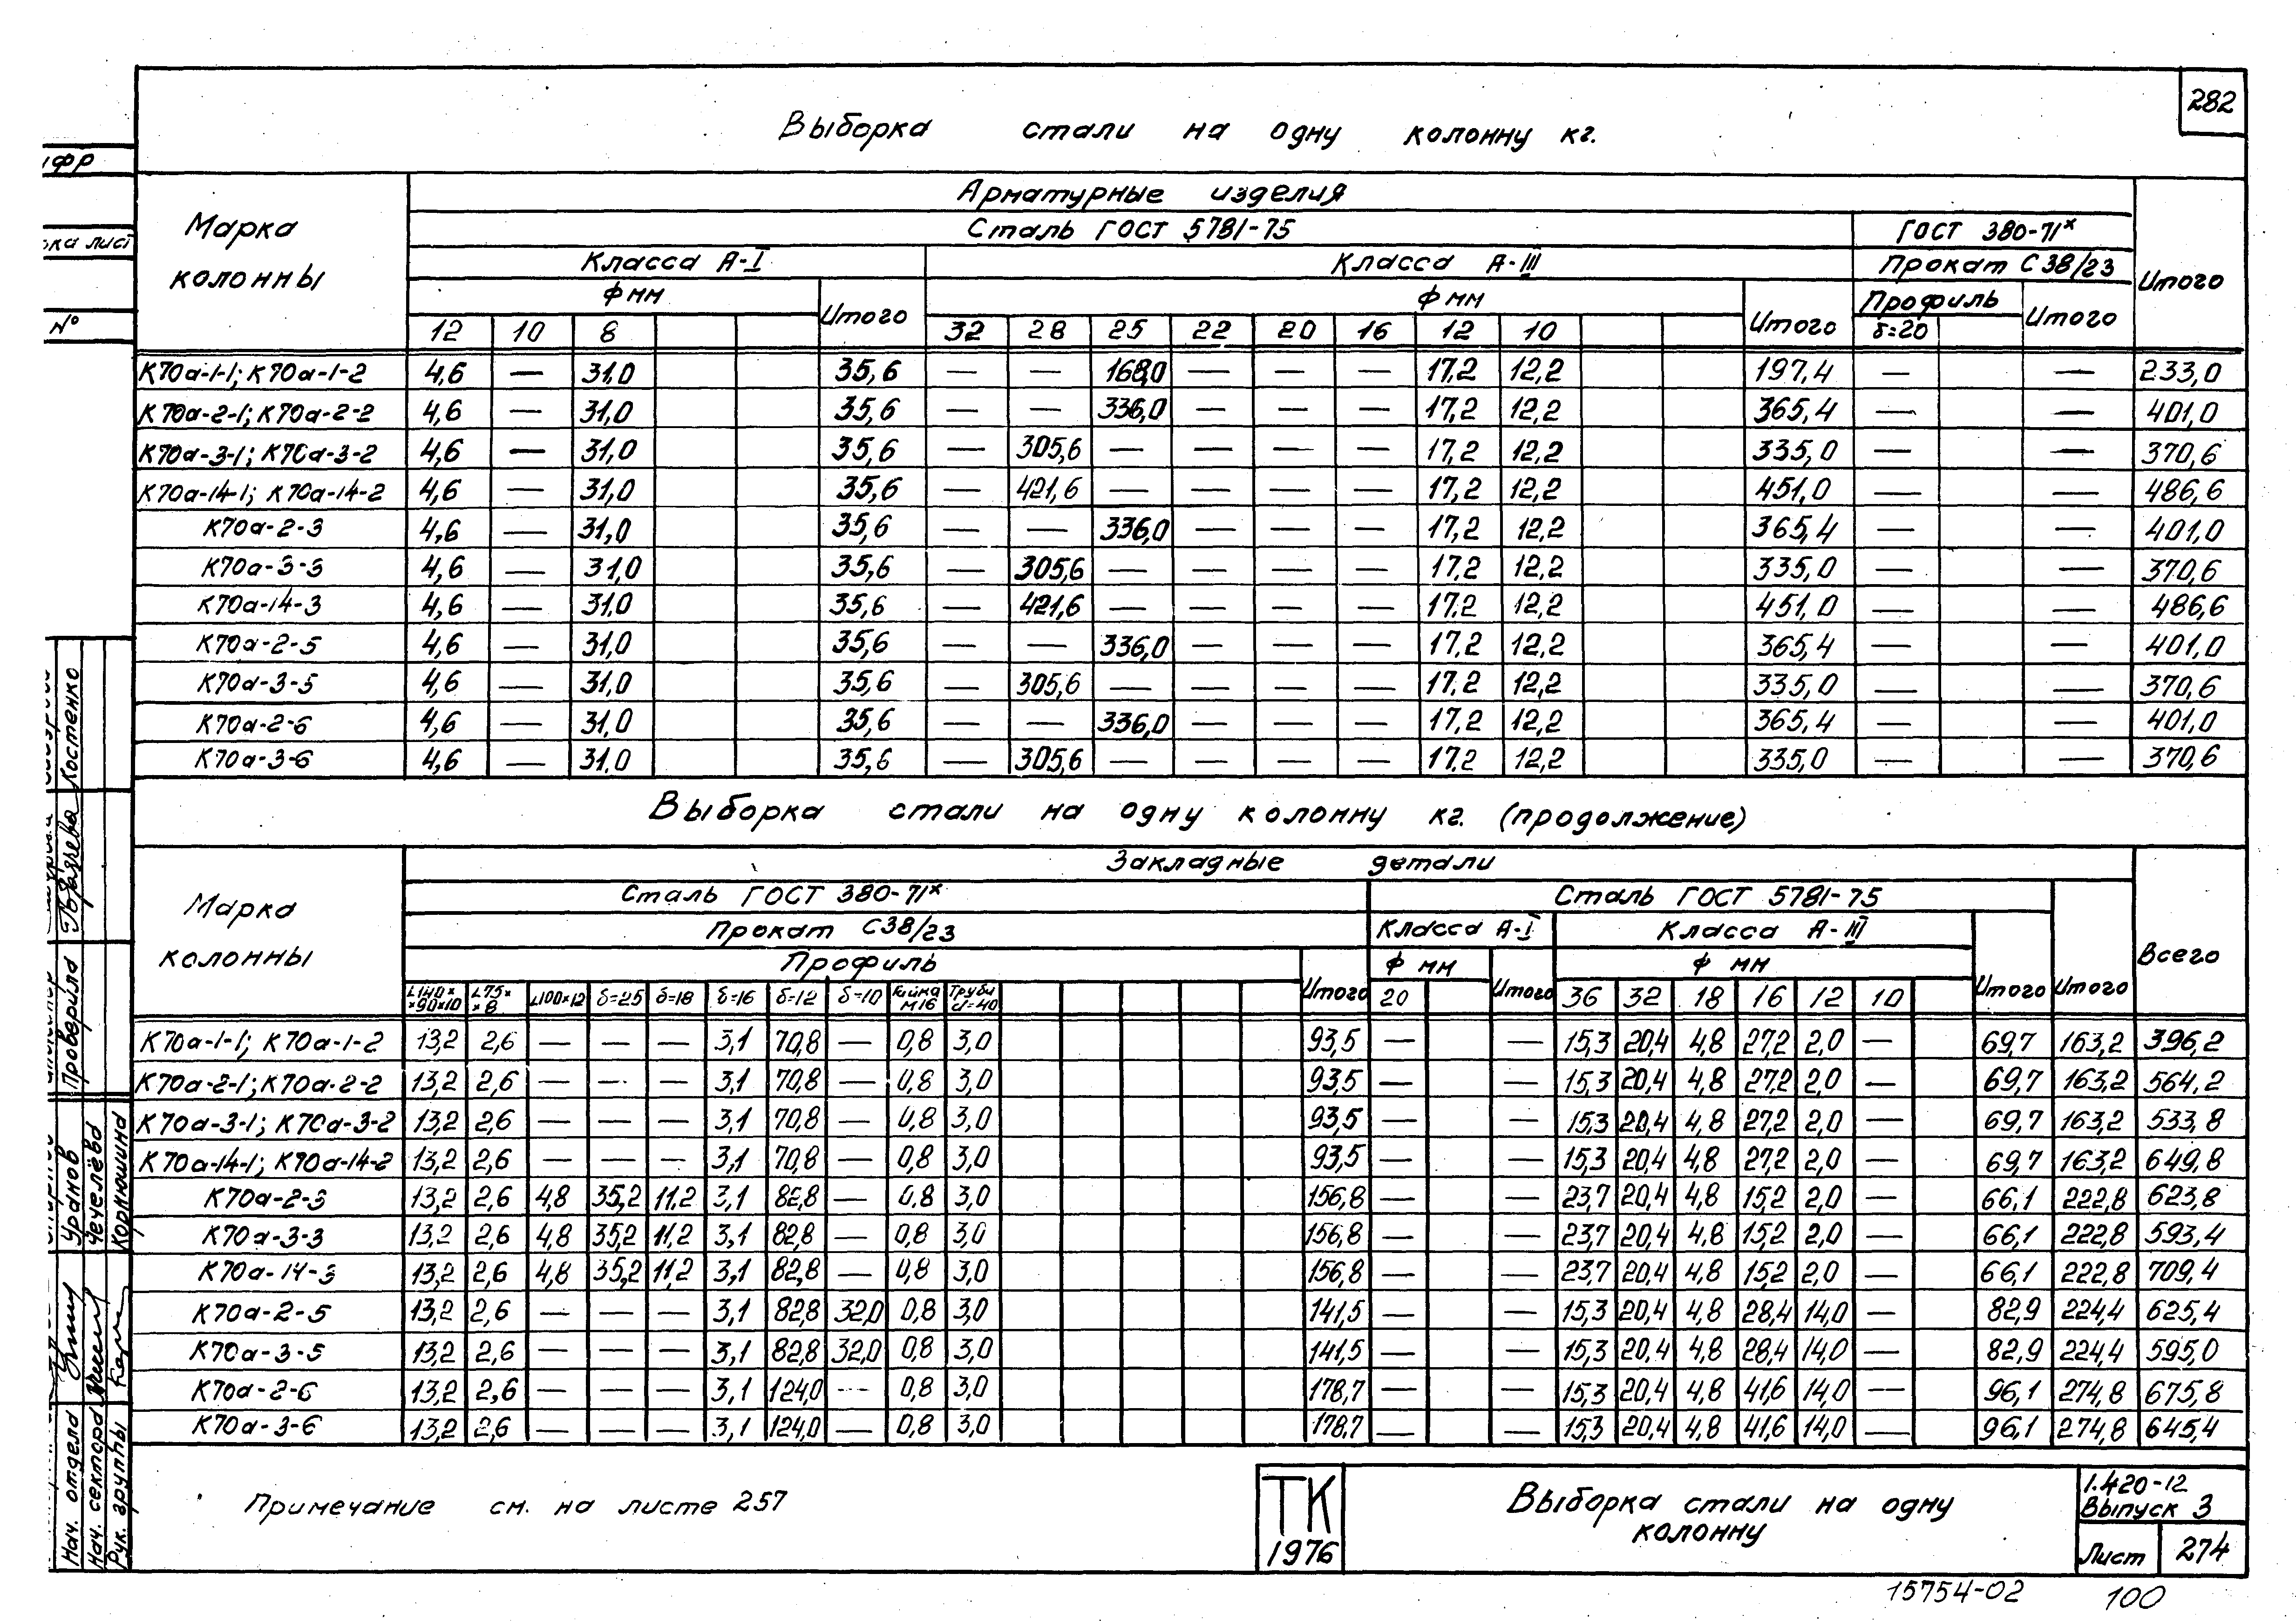 282
Выборка стали на одну колонну кг.
Марка колонны
Арматурные изделия
Итого
Сталь ГОСТ 5781-75
ГОСТ 380-71х
Класса А-I
Класса А-III
Прокат С38/23
Ф мм
Итого
Ф мм
Итого
Профиль
Итого
12 10 8 32 28 25 22 20 16 12 10 δ=20
К70а-1-1; К70а-1-2 4,6 — 31,0 35,6 — — 168,0 — — — 17,2 12,2 197,4 — — 233,0
К70а-2-1; К70а-2-2 4,6 — 31,0 35,6 — — 336,0 — — — 17,2 12,2 365,4 — — 401,0
К70а-3-1; К70а-3-2 4,6 — 31,0 35,6 — 305,6 — — — — 17,2 12,2 335,0 — — 370,6
К70а-14-1; К70а-14-2 4,6 — 31,0 35,6 — 421,6 — — — — 17,2 12,2 451,0 — — 486,6
К70а-2-3 4,6 — 31,0 35,6 — — 336,0 — — — 17,2 12,2 365,4 — — 401,0
К70а-3-3 4,6 — 31,0 35,6 — 305,6 — — — — 17,2 12,2 335,0 — — 370,6
К70а-14-3 4,6 — 31,0 35,6 — 421,6 — — — — 17,2 12,2 451,0 — — 486,6
К70а-2-5 4,6 — 31,0 35,6 — — 336,0 — — — 17,2 12,2 365,4 — — 401,0
К70а-3-5 4,6 — 31,0 35,6 — 305,6 — — — — 17,2 12,2 335,0 — — 370,6
К70а-2-6 4,6 — 31,0 35,6 — — 336,0 — — — 17,2 12,2 365,4 — — 401,0
К70а-3-6 4,6 — 31,0 35,6 — 305,6 — — — — 17,2 12,2 335,0 — — 370,6
Выборка стали на одну колонну кг. (продолжение)
Марка колонны
Закладные детали
Всего
Сталь ГОСТ 380-71х
Сталь ГОСТ 5781-75
Итого
Прокат С38/23
Класса А-I
Класса А-III
Итого
Профиль
Итого
Ф мм
Итого
Ф мм
L140××90×10 L75××8 L100×12 δ=25 δ=18 δ=16 δ=12 δ=10 Гайка М16 Труба d=40 20 36 32 18 16 12 10
К70а-1-1; К70а-1-2 13,2 2,6 — — — 3,1 70,8 — 0,8 3,0 93,5 — — 15,3 20,4 4,8 27,2 2,0 — 69,7 163,2 396,2
К70а-2-1; К70а-2-2 13,2 2,6 — — — 3,1 70,8 — 0,8 3,0 93,5 — — 15,3 20,4 4,8 27,2 2,0 — 69,7 163,2 564,2
К70а-3-1; К70а-3-2 13,2 2,6 — — — 3,1 70,8 — 0,8 3,0 93,5 — — 15,3 20,4 4,8 27,2 2,0 — 69,7 163,2 533,8
К70а-14-1; К70а-14-2 13,2 2,6 — — — 3,1 70,8 — 0,8 3,0 93,5 — — 15,3 20,4 4,8 27,2 2,0 — 69,7 163,2 649,8
К70а-2-3 13,2 2,6 4,8 35,2 11,2 3,1 82,8 — 0,8 3,0 156,8 — — 23,7 20,4 4,8 15,2 2,0 — 66,1 222,8 623,8
К70а-3-3 13,2 2,6 4,8 35,2 11,2 3,1 82,8 — 0,8 3,0 156,8 — — 23,7 20,4 4,8 15,2 2,0 — 66,1 222,8 593,4
К70а-14-3 13,2 2,6 4,8 35,2 11,2 3,1 82,8 — 0,8 3,0 156,8 — — 23,7 20,4 4,8 15,2 2,0 — 66,1 222,8 709,4
К70а-2-5 13,2 2,6 — — — 3,1 82,8 32,0 0,8 3,0 141,5 — — 15,3 20,4 4,8 28,4 14,0 — 82,9 224,4 625,4
К70а-3-5 13,2 2,6 — — — 3,1 82,8 32,0 0,8 3,0 141,5 — — 15,3 20,4 4,8 28,4 14,0 — 82,9 224,4 595,0
К70а-2-6 13,2 2,6 — — — 3,1 124,0 — 0,8 3,0 178,7 — — 15,3 20,4 4,8 41,6 14,0 — 96,1 274,8 675,8
К70а-3-6 13,2 2,6 — — — 3,1 124,0 — 0,8 3,0 178,7 — — 15,3 20,4 4,8 41,6 14,0 — 96,1 274,8 645,4
Примечание см. на листе 257
ТК
1976
Выборка стали на одну
колонну
1.420-12
Выпуск 3
Лист 274
15754-02 100
№
Костенко
Проверила
Уранов
Чечелёва
Кормюшина
Нач. отдела
Нач. сектора
Рук. группы